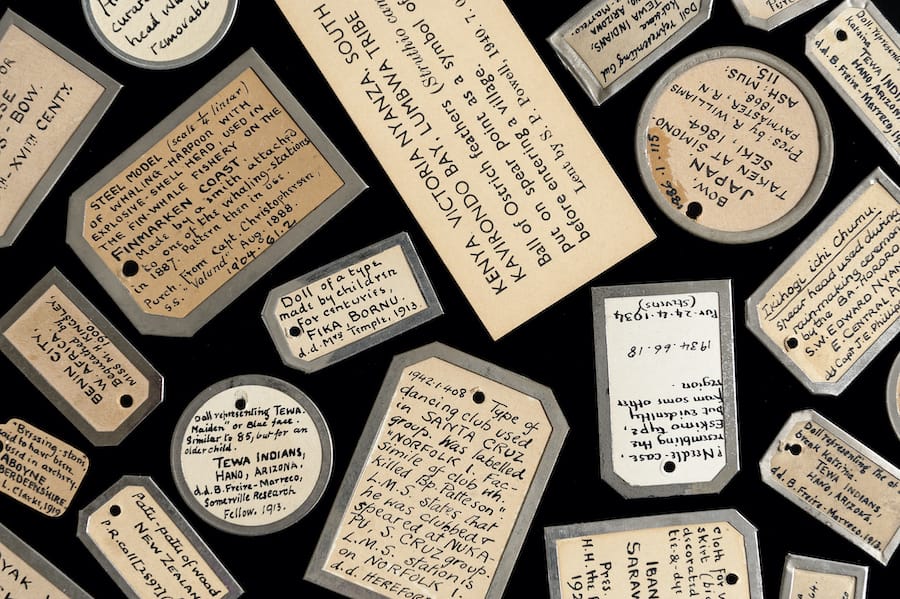 curated
head wa
removable
OR
SE
S - BOW.
TH - XVITH CENTY.
STEEL MODEL (scale ½ linear)
OF WHALING-HARPOON WITH
EXPLOSIVE-SHELL HEAD, USED IN
THE FIN-WHALE FISHERY ON THE
FINMARKEN COAST.
Made by a smith attached
to one of the whaling-stations
in 1887. Pattern then in use.
Purch. from Capt. Christophersen,
s.s. "Valund" Aug. 1888.
1904.61.2
KENYA VICTORIA NYANZA SOUTH
KAVIRONDO BAY, LUMBWA TRIBE
Ball of Ostrich feathers (Struthio cam
put on spear point as a symbol of
before entering a village.
Lent by S. P. Powell, 1940. 7. 0
Doll representing
TEWA INDIANS,
ARIZONA.
Marreco.
BOW.
JAPAN
TAKEN AT SIMONO
SEKI, AT 1864
Pres. by R. W. Williams
PAYMASTER R.N.
1868
ASH: MUS:
115.
1886.1.115
Doll
TEWA INDI
HANO, ARIZONA,
d.d. B. Freire-Marreco,
Doll of a type
made by children
for centuries.
FIKA, BORNU.
d.d. Mrs Temple, 1913.
Irichogi ichi chumu.
spear head used during
rainmaking ceremon
by the BA-TORORO
S.W. EDWARD NYAN
E. CENTRAL A
dd Capt J E Phillip
BENIN CITY,
W. AFRICA
Bequeathed by
Miss M. KINGSLEY,
1900
Doll representing TEWA.
Maiden" or Blue face.
Similar to 85, but for an
older child.
TEWA INDIANS,
HANO, ARIZONA.
d.d. B. Freire-Marreco,
Somerville Research
Fellow. 1913.
1942.1.408
Type of
dancing club used
in SANTA CRUZ
group. Was labelled
"NORFOLK I. Fac-
simile of club wh.
killed Bp. Patteson"
L.M.S. states that
he was clubbed or
speared at NUKA-
PU, S. CRUZ group.
L.M.S. station is
on NORFOLK I.
d.d. HEREFOR
? Needle-case,
resembling the
Eskimo type,
but evidently
from some other
region.
1934.66.18
Pur. 24.4.1934
(Stevens)
"Bressing-stone
said to have been
used in arch
ABOYNE
BERDEENSHIRE.
L. Clarke, 1919
Patu-patu of wood
NEW ZEALAN
P.R. coll
YAK
cloth for
skirt (bi
decorated
tie-&-dye
IBAN
SARAW
Pres.
H.H. the
192
Doll representing the
Greek katsina.
TEWA INDIANS,
HANO, ARIZONA.
d.d. B. Freire-Marreco, 1913.